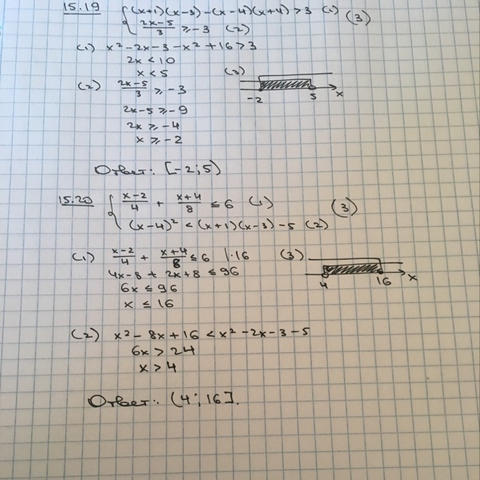 15.19 { (x+1)(x-3)-(x-4)(x+4)>3 (1) (3)
(2x-5)/3 ≥ -3 (2)
(1) x²-2x-3-x²+16>3
2x<10
x<5
(2) (2x-5)/3 ≥ -3 (3) -2 5 x
2x-5 ≥ -9
2x ≥ -4
x ≥ -2
Ответ: [-2; 5)
15.20 { (x-2)/4 + (x+4)/8 ≤ 6 (1) (3)
(x-4)² < (x+1)(x-3)-5 (2)
(1) (x-2)/4 + (x+4)/8 ≤ 6 |·16 (3) 4 16 x
4x-8+2x+8 ≤ 96
6x ≤ 96
x ≤ 16
(2) x²-8x+16 < x²-2x-3-5
6x>24
x>4
Ответ: (4; 16].